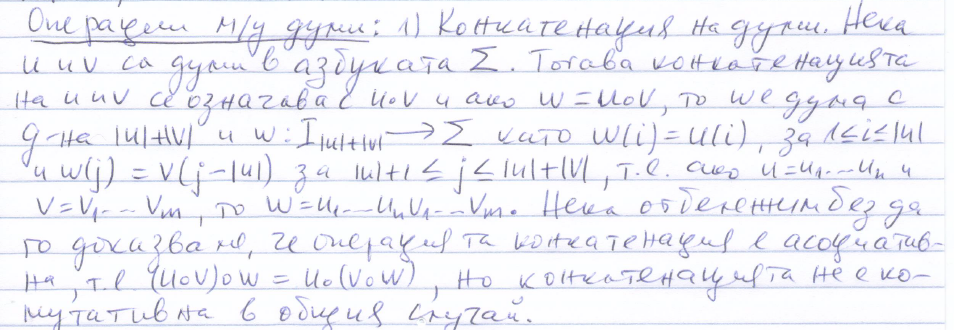 Операции м/у думи: 1) Конкатенация на думи. Нека
u и v са думи в азбуката Σ. Тогава конкатенацията
на u и v се означава с u∘v и ако w = u∘v, то w е дума с
д-на |u|+|v| и w: I|u|+|v| → Σ като w(i) = u(i), за 1≤i≤|u|
и w(j) = v(j-|u|) за |u|+1 ≤ j ≤ |u|+|v|, т.е. ако u=u1...un и
v=v1...vm, то w=u1...unv1...vm. Нека отбележим без да
го доказваме, че операцията конкатенация е асоциатив-
на, т.е (u∘v)∘w = u∘(v∘w), но конкатенацията не е ко-
мутативна в общия случай.